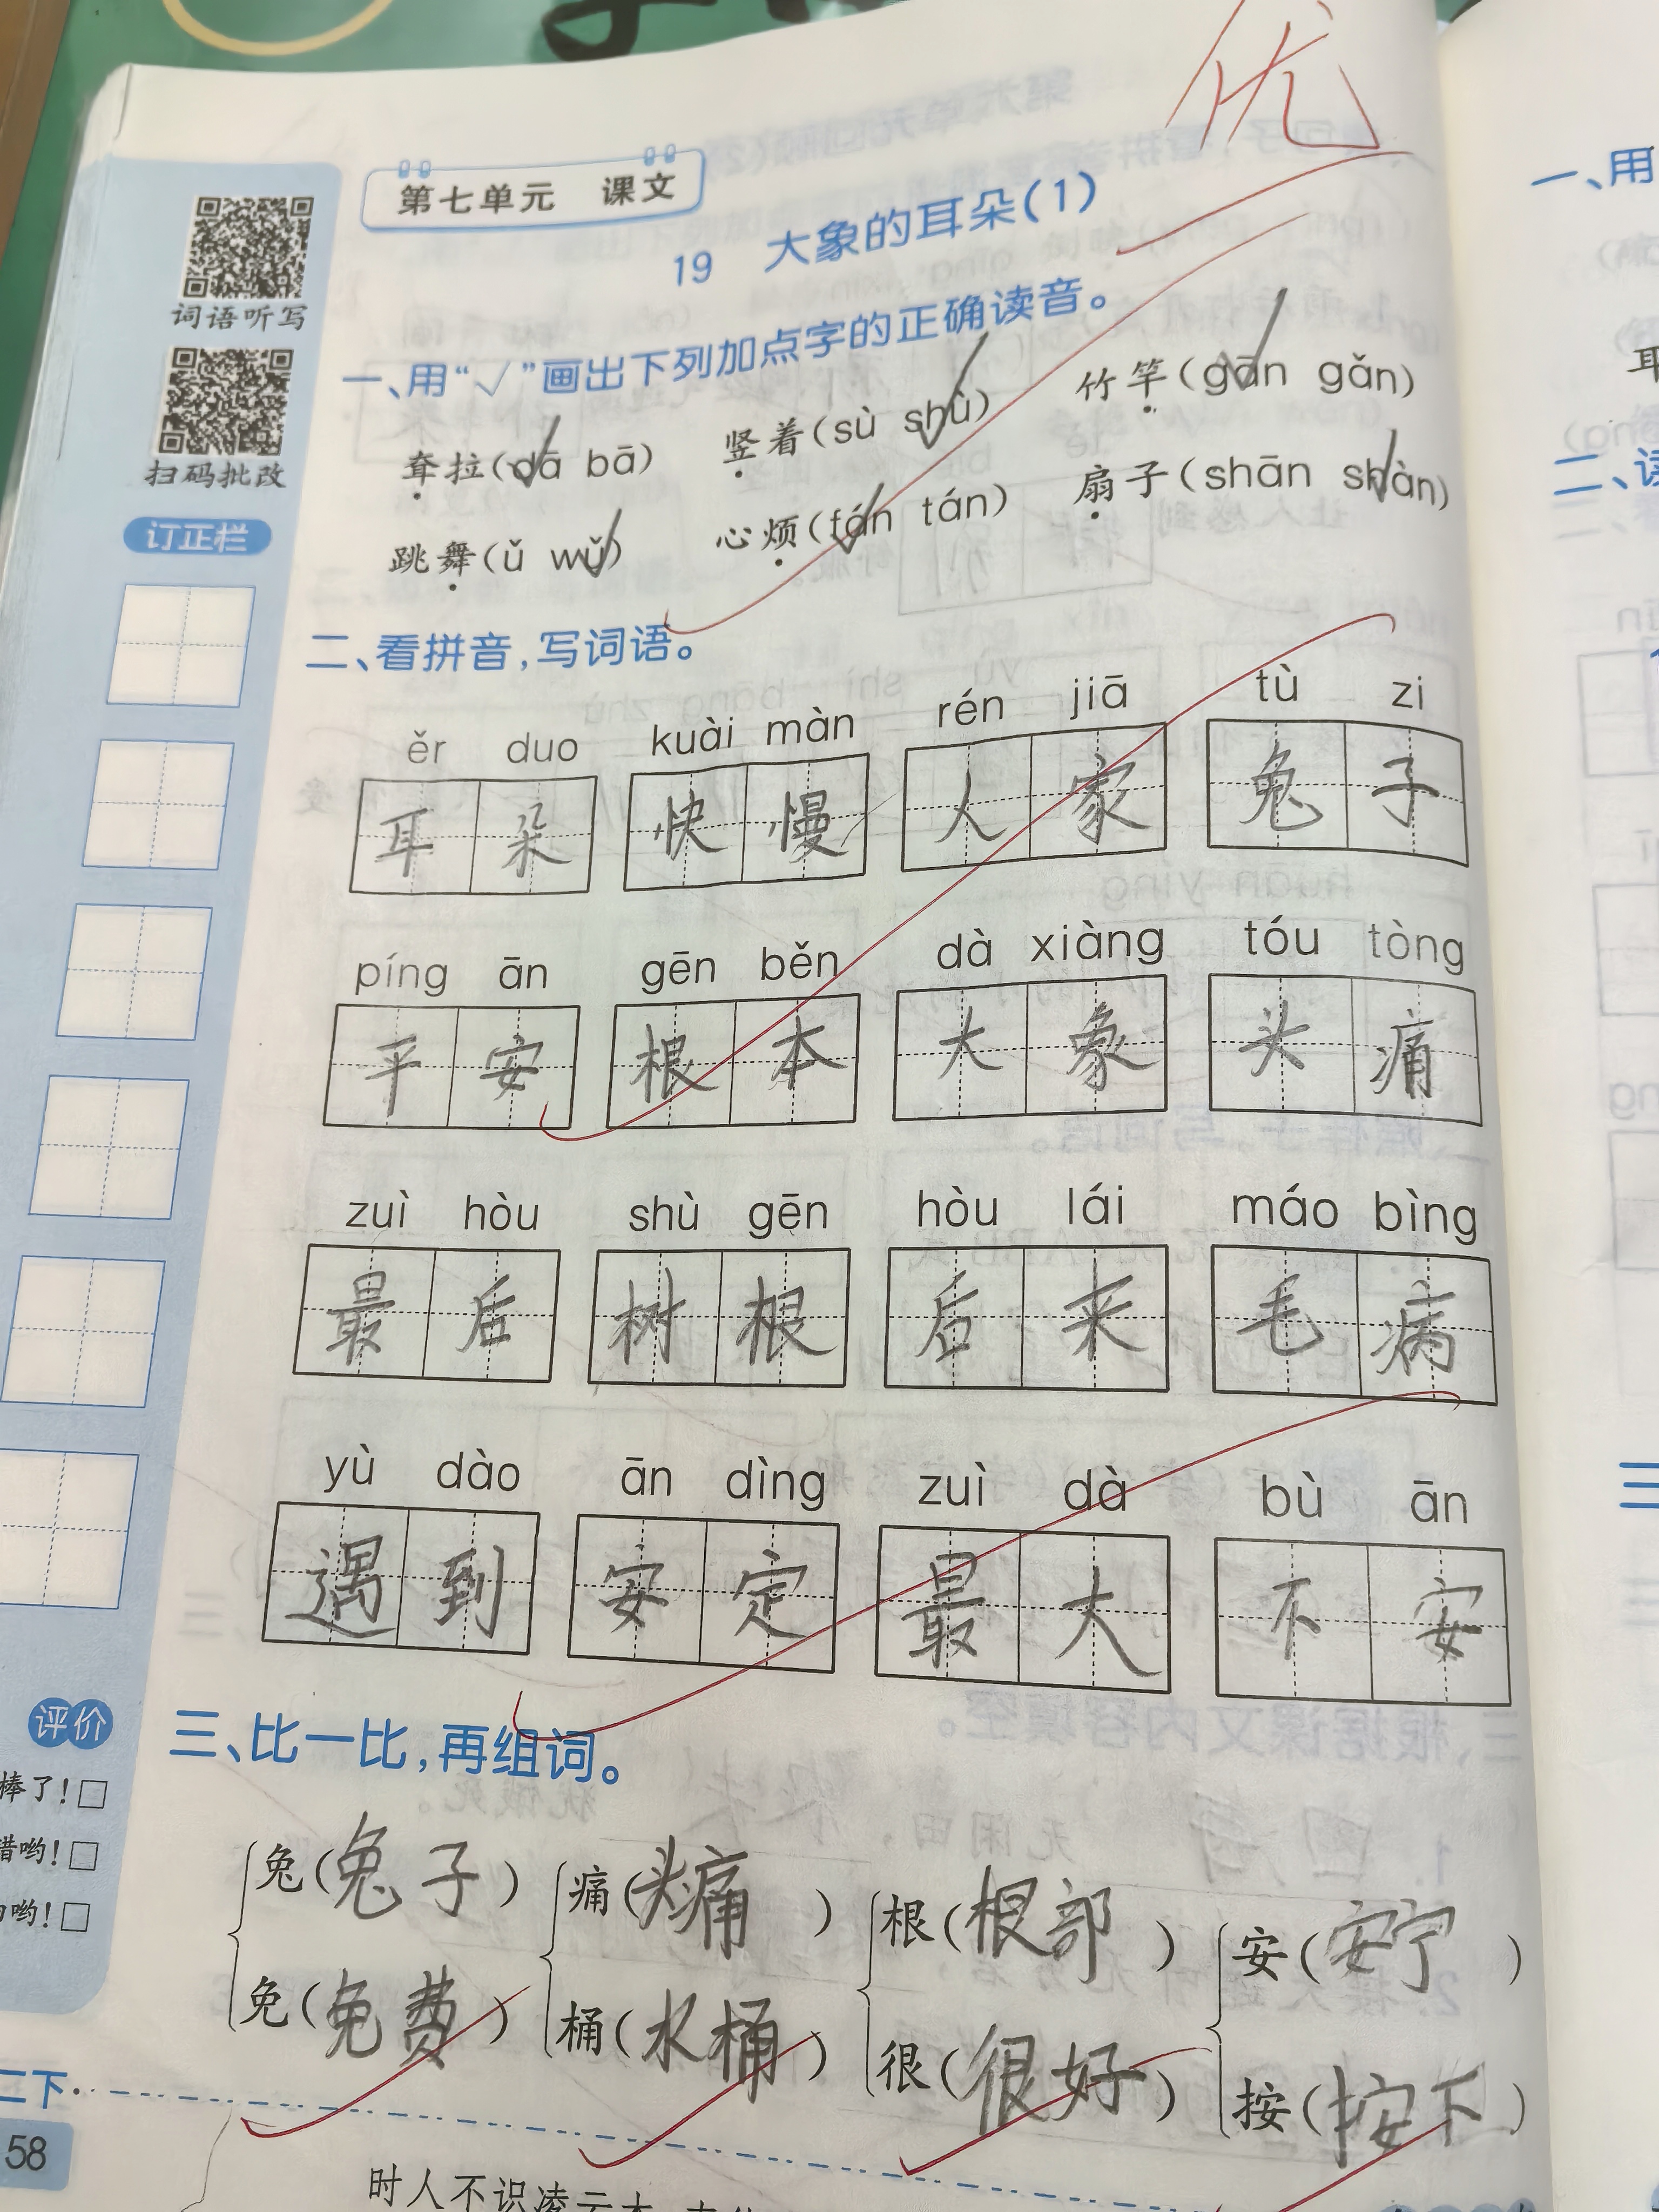 优
第七单元 课文
19 大象的耳朵(1)
词语听写
扫码批改
订正栏
一、用“√”画出下列加点字的正确读音。
耷拉(dā bā) 竖着(sù shù) 竹竿(gān gǎn)
跳舞(ǔ wǔ) 心烦(fán tán) 扇子(shān shàn)
二、看拼音,写词语。
ěr duo kuài màn rén jiā tù zi
耳朵 快慢 人家 兔子
píng ān gēn běn dà xiàng tóu tòng
平安 根本 大象 头痛
zuì hòu shù gēn hòu lái máo bìng
最后 树根 后来 毛病
yù dào ān dìng zuì dà bù ān
遇到 安定 最大 不安
三、比一比,再组词。
兔(兔子) 痛(头痛) 根(根部) 安(安宁)
免(免费) 桶(水桶) 很(很好) 按(按下)
评价
棒了!□
错哟!□
哟!□
二下
58
时人不识凌云木
一、用
二、读
三